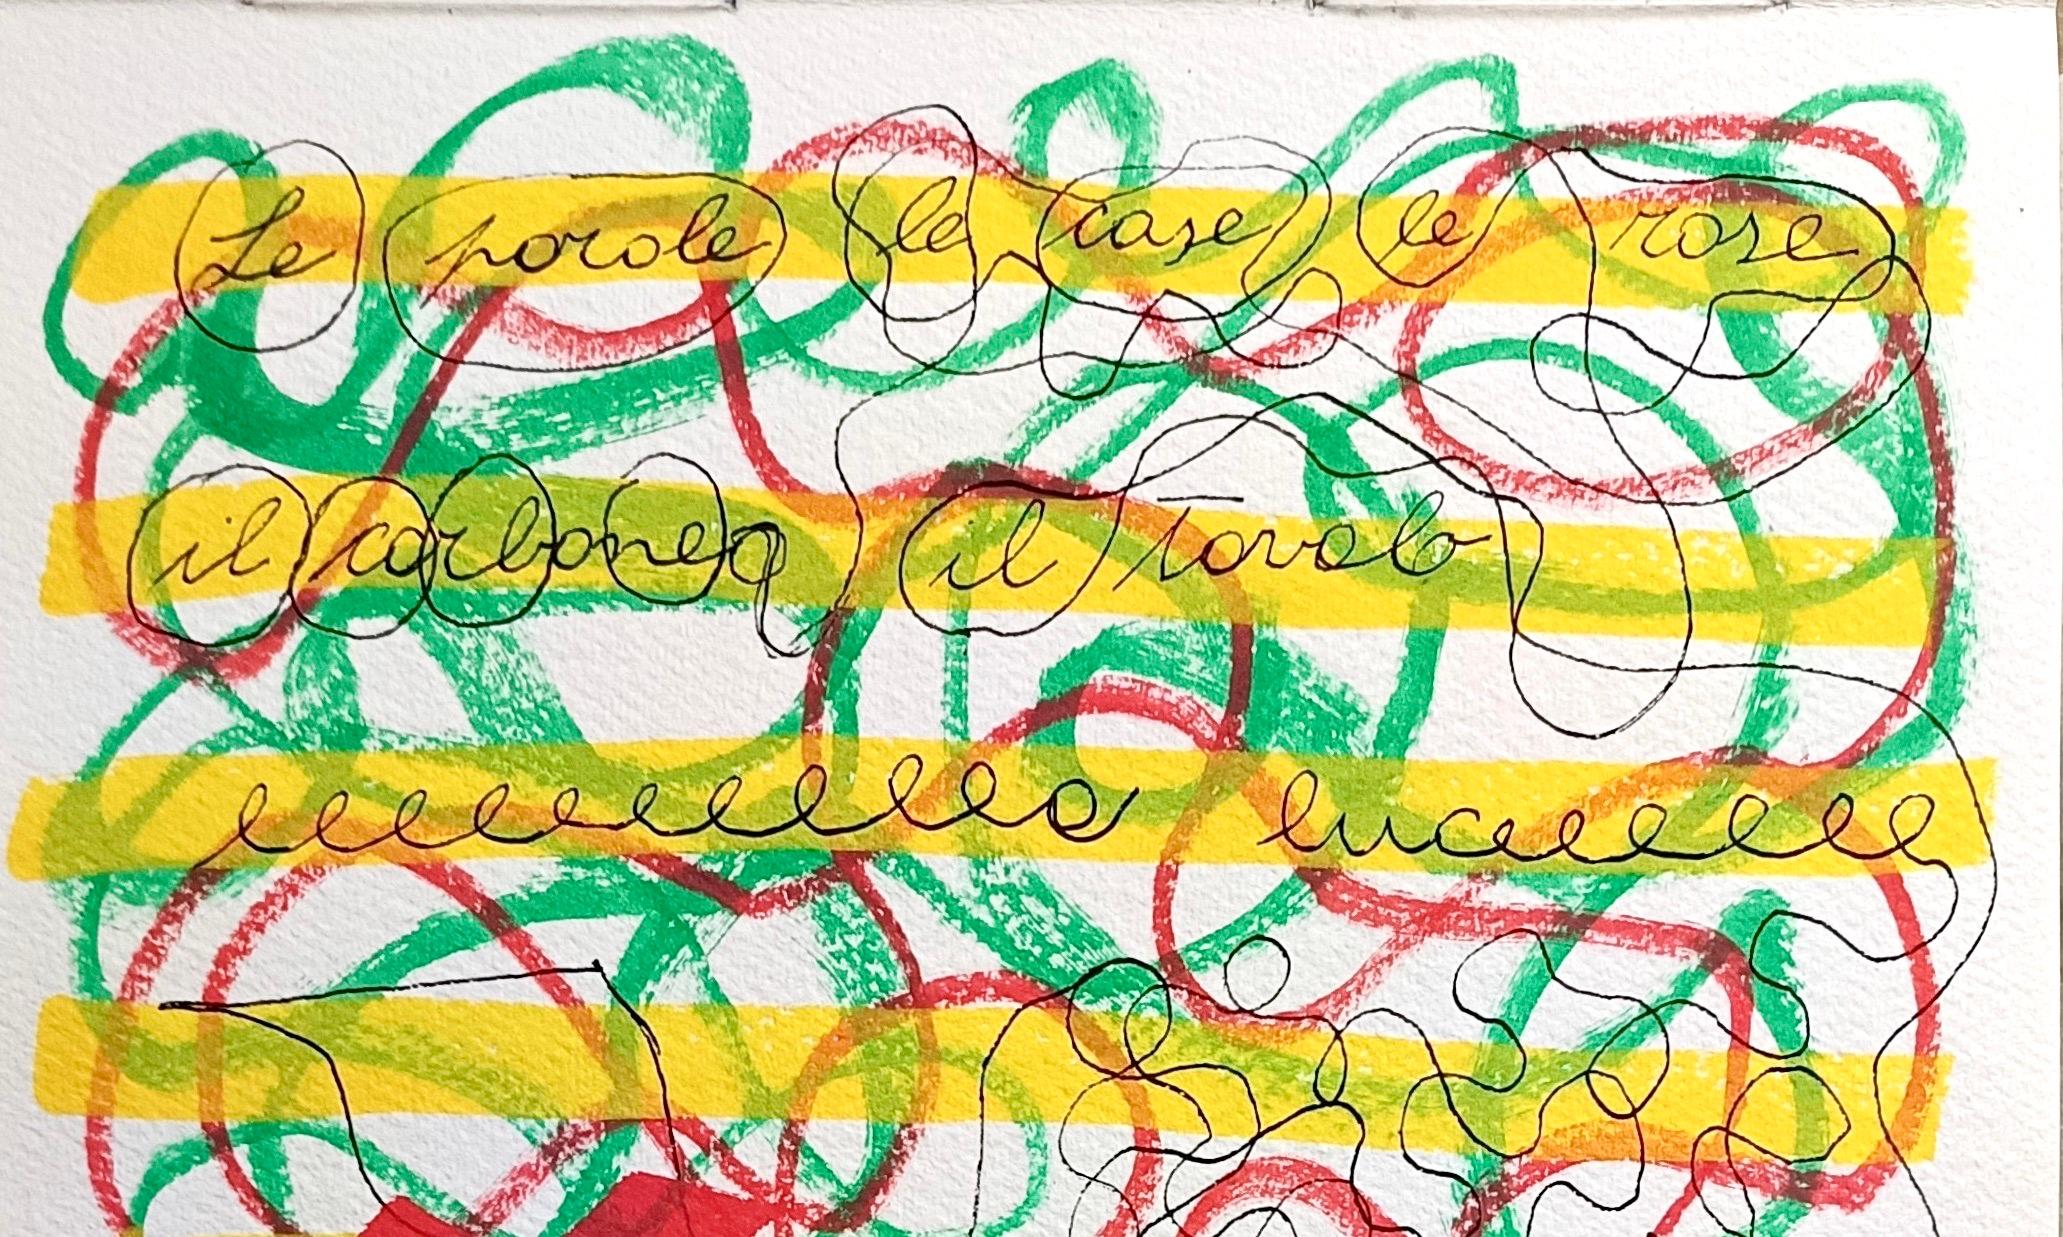 Le parole le case le rose
il carbone il tavolo
luce